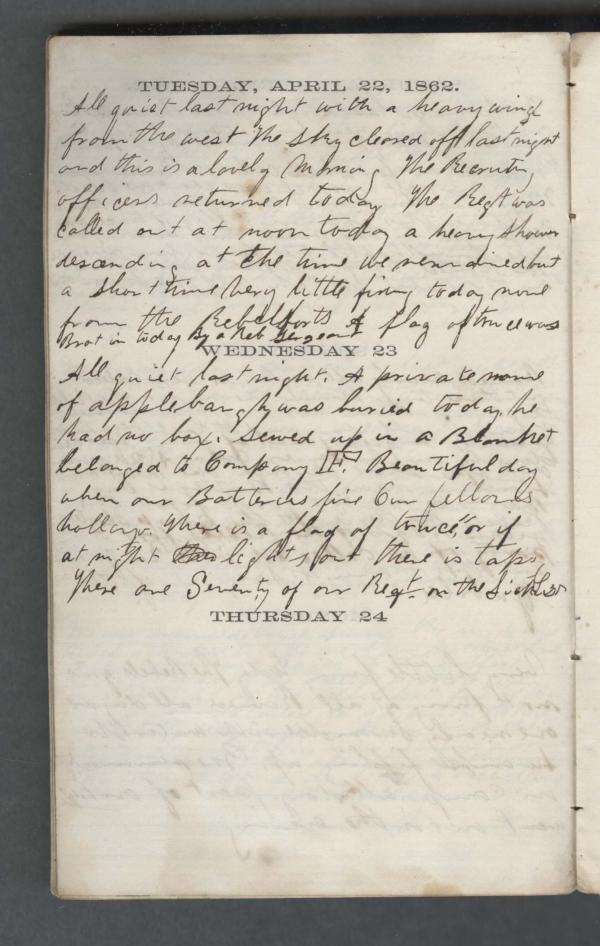 TUESDAY, APRIL 22, 1862.
All quiet last night with a heavy wind
from the west The sky cleared off last night
and this is a lovely Morning The Recruiting
officers returned today The Regt was
called out at noon today a heavy shower
descending at the time we remained but
a short time Very little firing today none
from the Rebel forts A flag of truce was
Brot in today By a Reb Sergeant
WEDNESDAY 23
All quiet last night. A private name
of applebaugh was buried today, he
had no box. Sewed up in a Blanket
belonged to Company F. Beautiful day
when our Batteries fire Our fellows
hollow. There is a flag of truce, or if
at night lights out there is taps
There are Seventy of our Regt. on the Sick List
THURSDAY 24